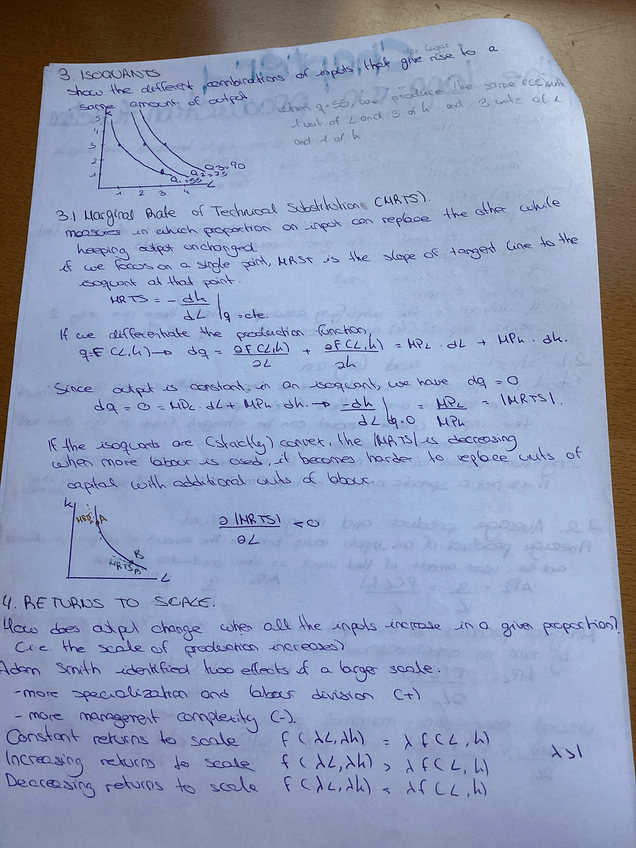 3. ISOQUANTS
show the different combinations of inputs, that give rise to a
same amount of output
when q=55, we produce the same output with
1 unit of L and 3 of k and 3 units of L
and 1 of k
k
5
4
3
2
1
1 2 3 4 L
Q3=90
Q2=75
Q1=55
3.1 Marginal Rate of Technical Substitution (MRTS).
measures in which proportion an input can replace the other while
keeping output unchanged.
if we focus on a single point, MRST is the slope of tangent line to the
isoquant at that point.
MRTS = - dk/dL | q=cte.
If we differentiate the production function,
q=F(L,k) → dq = ∂F(L,k)/∂L + ∂F(L,k)/∂k = MPL · dL + MPk · dk.
Since output is constant in an isoquant, we have dq = 0
dq = 0 = MPL · dL + MPk · dk → -dk/dL | dq=0 = MPL/MPk = |MRTS|.
If the isoquants are (strictly) convex, the |MRTS| is decreasing
when more labour is used, it becomes harder to replace units of
capital with additional units of labour.
k
MRTSA
A
B
MRTSB
L
∂|MRTS|/∂L <0
4. RETURNS TO SCALE.
How does output change when all the inputs increase in a given proportion?
(i.e. the scale of production increases)
Adam Smith identified two effects of a larger scale:
- more specialization and labour division (+)
- more management complexity (-).
Constant returns to scale f(λL, λk) = λf(L, k)
Increasing returns to scale f(λL, λk) > λf(L, k) λ>1
Decreasing returns to scale f(λL, λk) < λf(L, k)